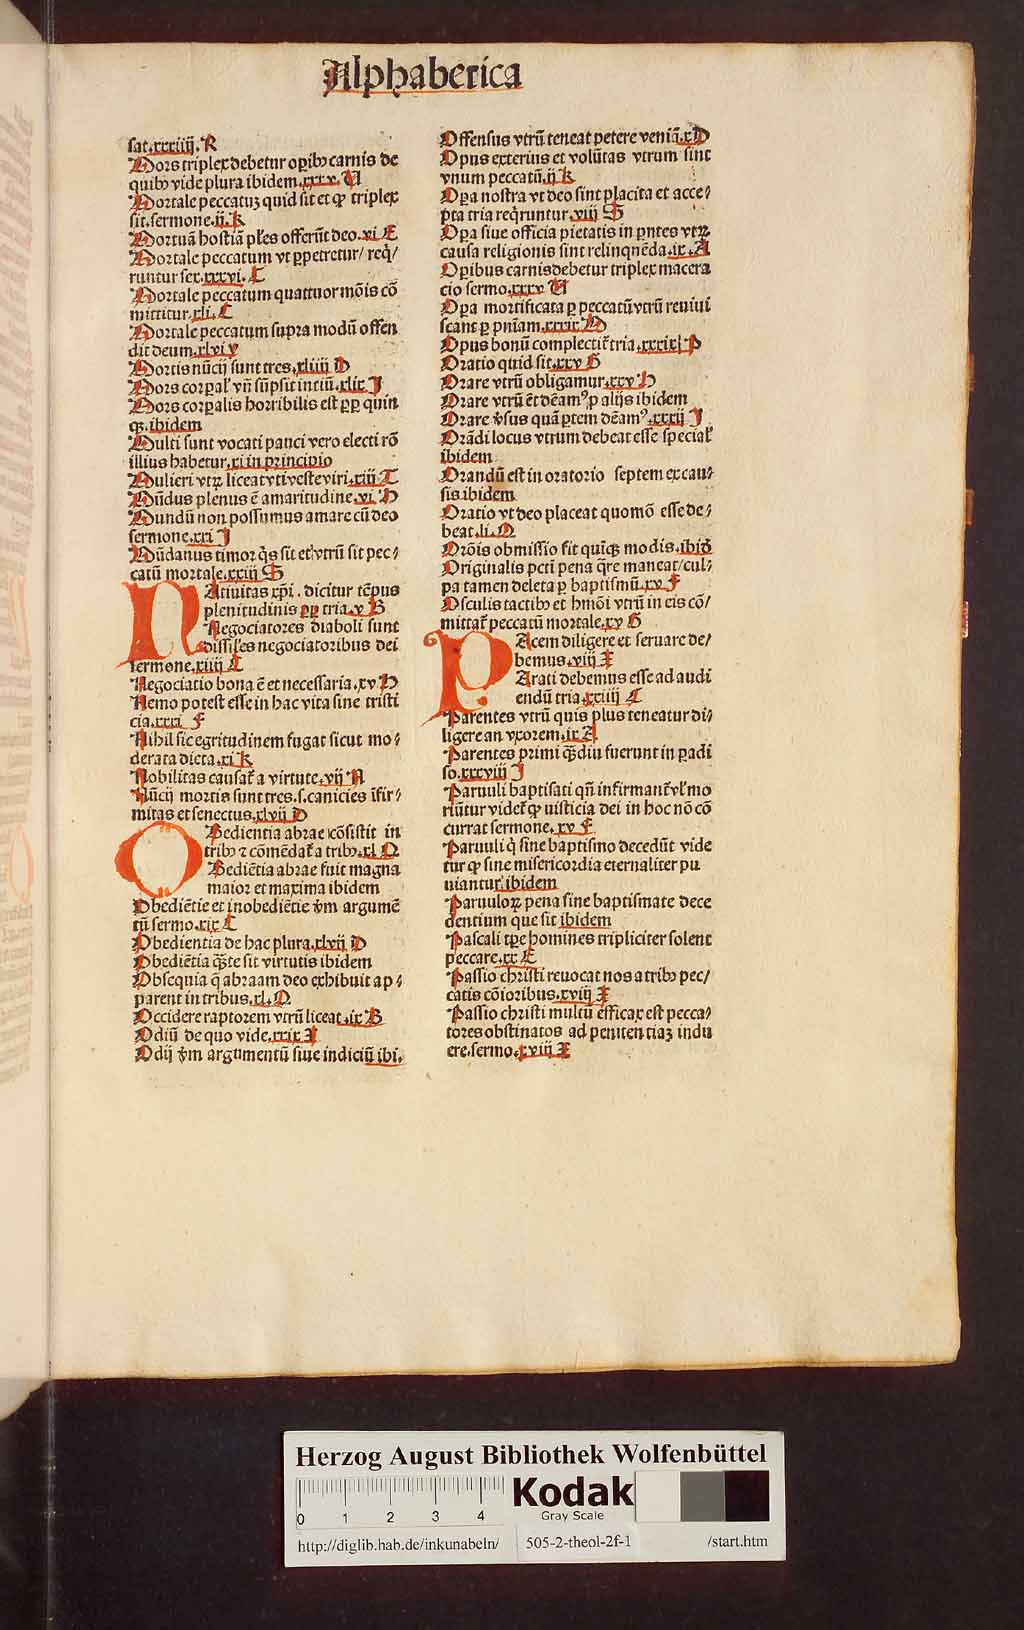 Alphabetica
sat.xxxiiij.R
Mors triplex debetur oꝑibꝰ carnis de
quibꝰ vide plura ibidem.xxxv.U
Mortale peccatuꝫ quid sit et qͦ triplex
sit.sermone.ij.K
Mortuā hostiā pl̄es offerūt deo.vi E
Mortale peccatum vt ꝑpetretur/ req̇/
runtur sex.xxxvi.C
Mortale peccatum quattuor mōis cō
mittitur.xli.C
Mortale peccatum supra modū offen
dit deum.xlvi v
Mortis nūcij sunt tres.xliiij D
Mors corꝑal' vn̄ sūpsit initiū.xlix I
Mors corꝑalis horribilis est ꝓꝑ quin
qꝫ.ibidem
Multi sunt vocati pauci vero electi rō
illius habetur.xi in principio
Mulieri vtꝝ liceat vti veste viri.xiij T
Mūdus plenus ē amaritudine.vi H
Mundū non possumus amare cū deo
sermone.xxi I
Mūdanus timor q̇s sit et vtrū sit pec⸗
catū mortale.xxiij S
NAtiuitas xp̄i . dicitur tēpus
plenitudinis ꝓꝑ tria.v B
Negociatores diaboli sunt
dissil̄es negociatoribus dei
sermone.xiiij C
Negociatio bona ē et necessaria.xv H
Nemo potest esse in hac vita sine tristi
cia.xxxi F
Nihil sic egritudinem fugat sicut mo⸗
derata dieta.xi K
Nobilitas causat̄ a virtute.vij N
Nūcij mortis sunt tres.s.canicies īfir⸗
mitas et senectus.xlvij D
OBedientia abrae cōsistit in
tribꝰ ⁊ cōmēdat̄ a tribꝰ.xl N
Obediētia abrae fuit magna
maior et maxima ibidem
Obediētie et inobediētie ꝟm argumē
tū sermo.xix C
Obedientia de hac plura.xlvij D
Obediētia q̄ste sit virtutis ibidem
Obsequia q̄ abraam deo exhibuit ap⸗
parent in tribus.xl.N
Occidere raptorem vtrū liceat.ix B
Odiū de quo vide.xxix X
Odij ꝟm argumentū siue indiciū ibi.
Offensus vtrū teneat petere veniā.x D
Opus exterius et volūtas vtrum sint
vnum peccatū.ij K
Oꝑa nostra vt deo sint placita et acce⸗
pta tria req̇runtur.viij S
Oꝑa siue officia pietatis in ꝑntes vtꝝ
causa religionis sint relinquēda.ix.A
Oꝑibus carnis debetur triplex macera
cio sermo.xxxv U
Oꝑa mortificata ꝑ peccatū vtrū reuiui
scant ꝑ pn̄iam.xxxix D
Opus bonū complectit̄ tria.xxxix P
Oratio quid sit.xxv G
Orare vtrū obligamur.xxv H
Orare vtrū ēt dēamꝰ ꝓ alijs ibidem
Orare ꝟsus quā ꝑtem dēamꝰ.xxxij I
Orādi locus vtrum debeat esse special'
ibidem
Orandū est in oratorio septem ex cau⸗
sis ibidem
Oratio vt deo placeat quomō esse de⸗
beat.li.N
Orōis obmissio fit quīqꝫ modis.ibid̄
Originalis pcti pena q̄re maneat/cul⸗
pa tamen deleta ꝑ baptismū.xv F
Osculis tactibꝰ et hmōi vtrū in eis cō/
mittat̄ peccatū mortale.xv G
PAcem diligere et seruare de/
bemus.viij X
Parati debemus esse ad audi
endū tria.xxiiij C
Parentes vtrū quis plus teneatur di⸗
ligere an vxorem.ix A
Parentes primi q̄diu fuerunt in ꝑadi
so.xxxviij I
Paruuli baptisati qn̄ infirmant̄ vl' mo
riūtur videt̄ qͦ iusticia dei in hoc nō cō
currat sermone.xv F
Paruuli q̇ sine baptismo decedūt vide
tur qͦ sine misericordia eternaliter pu
niantur ibidem
Paruuloꝝ pena sine baptismate dece
dentium que sit ibidem
Pascali tꝑe homines tripliciter solent
peccare.xx E
Passio christi reuocat nos a tribꝰ pec/
catis cōioribus.xviij X
Passio christi multū efficax est pecca⸗
tores obstinatos ad penitentiaꝫ indu
cere.sermo.xviij X
Herzog August Bibliothek Wolfenbüttel
0 1 2 3 4
Kodak
Gray Scale
http://diglib.hab.de/inkunabeln/ 505-2-theol-2f-1 /start.htm